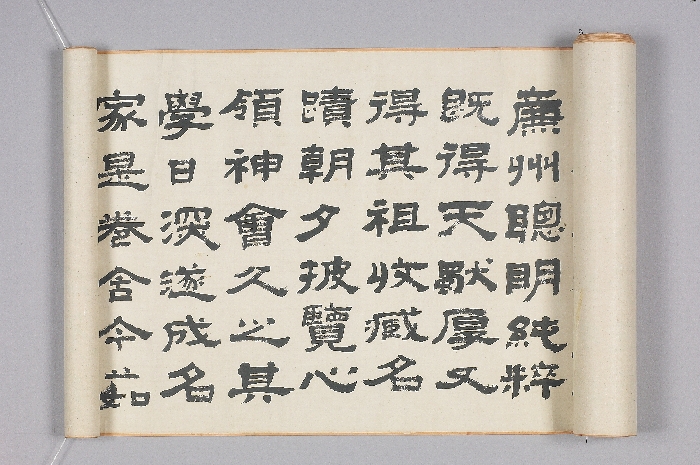 廉州聰明純粹
既得天猒厚又
得其祖收藏名
蹟朝夕披覽心
領神會久之其
學日深遂成名
家是卷舍今茹